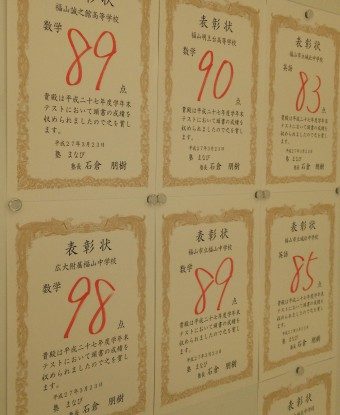 表彰状
福山誠之館高等学校
数学
89
点
貴殿は平成二十七年度学年末
テストにおいて頭書の成績を
収められましたので之を賞し
ます。
平成27年3月23日
塾 まなび
塾長 石倉 朋樹
表彰状
福山明王台高等学校
数学
90
点
貴殿は平成二十七年度学年末
テストにおいて頭書の成績を
収められましたので之を賞し
ます。
平成27年3月23日
塾 まなび
塾長 石倉 朋樹
表彰状
英語
83
点
貴殿は平成二十七年度学年末
テストにおいて頭書の成績を
収められましたので之を賞し
ます。
平成27年3月23日
塾 まなび
塾長 石倉 朋樹
表彰状
広大附属福山中学校
数学
98
点
貴殿は平成二十七年度学年末
テストにおいて頭書の成績を
収められましたので之を賞し
ます。
平成27年3月23日
塾 まなび
塾長 石倉 朋樹
表彰状
福山市立福山中学校
数学
89
点
貴殿は平成二十七年度学年末
テストにおいて頭書の成績を
収められましたので之を賞し
ます。
平成27年3月23日
塾 まなび
塾長 石倉 朋樹
表彰状
英語
85
点
貴殿は平成二十七年度学年末
テストにおいて頭書の成績を
収められましたので之を賞し
ます。
平成27年3月23日
塾 まなび
塾長 石倉 朋樹
表彰状